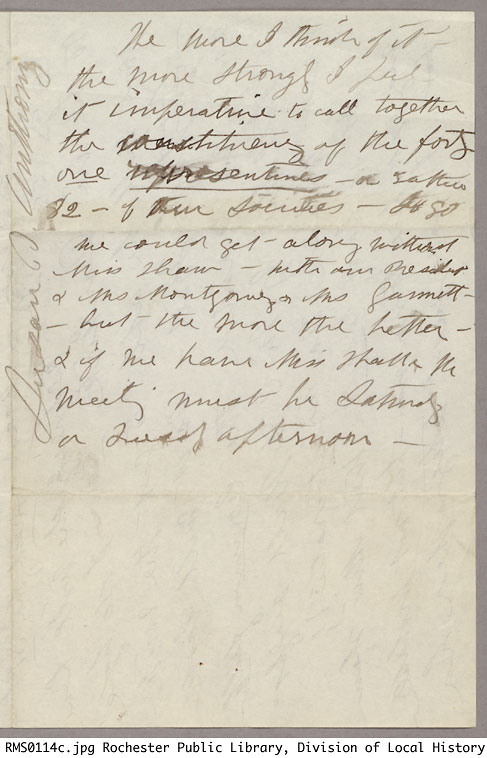 The more I think of it -
the more strongly I feel
it imperative to call together
the constituency of the forty
one representatives - or rather
82 - of their Societies -
we could get along without
Miss Shaw - with our President
& Mrs Montgomery & Mrs Gannett -
- but the more the better -
& if we have Miss Shaw the
Meeting must be Saturday
or Sunday afternoon -
Susan B Anthony
RMS0114c.jpg Rochester Public Library, Division of Local History